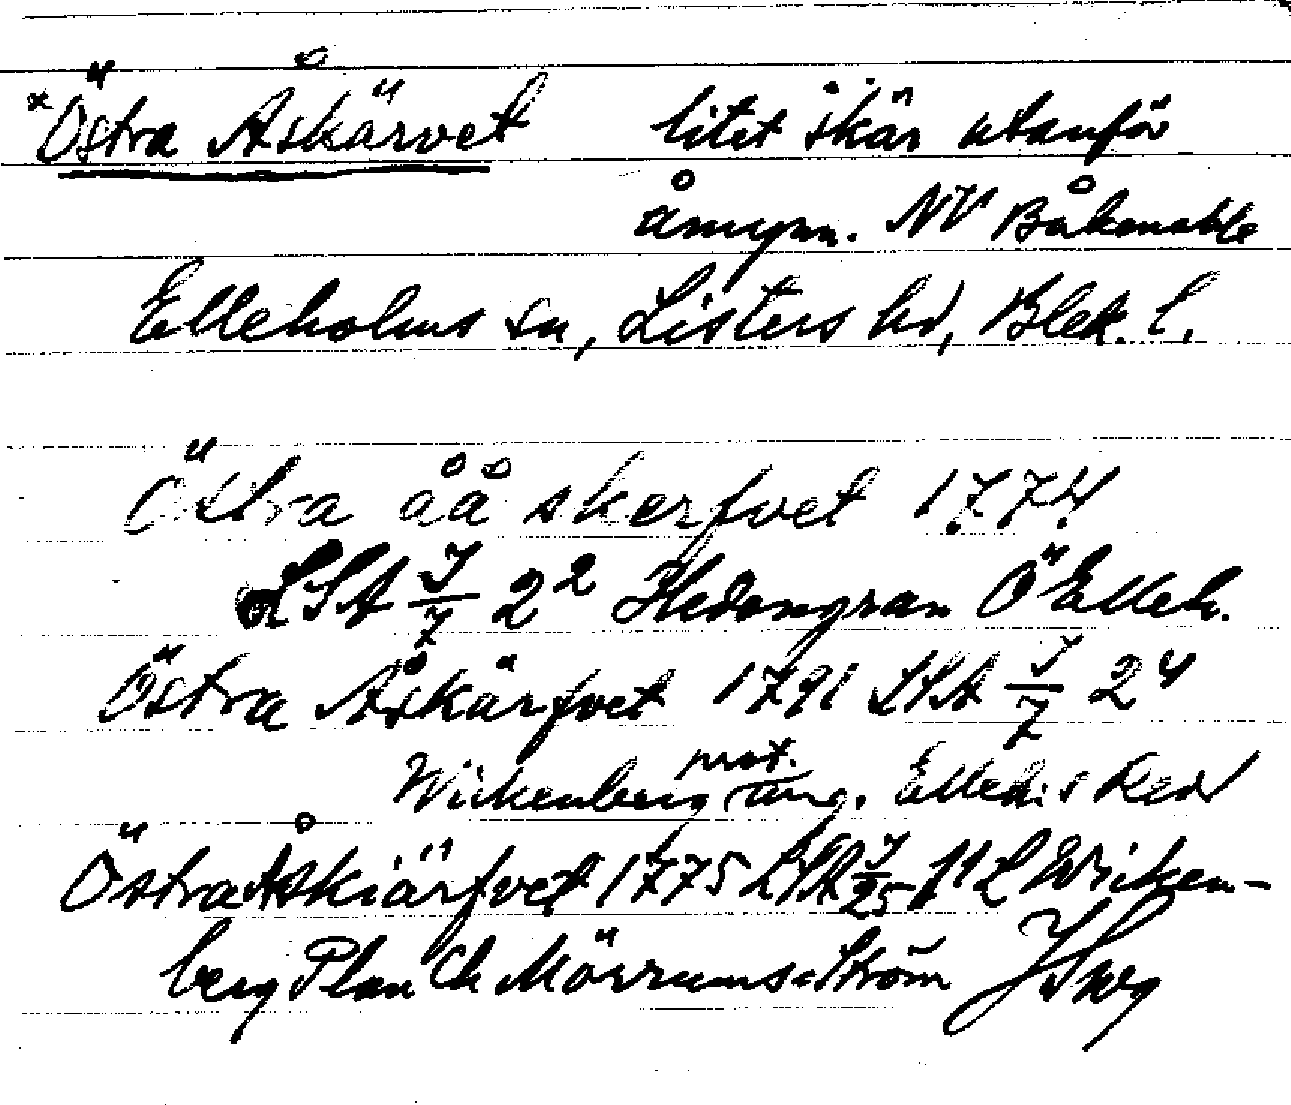 *Östra Åskärvet litet skär utanför
åmynn. NV Båkenabbe
Elleholms sn, Listers hd, Blek. l.
Östra åå skerfvet 1774
LSA J/7 2² Hedengran Ö Elleh.
Östra Åskärfvet 1791 LSA J/7 2⁴
Wickenberg prot. ang. Elleh:s
Östra Åskiärfvet 1775 LSA J/25 1¹ L Wicken-
berg Plan Ch Mörrums-Ström